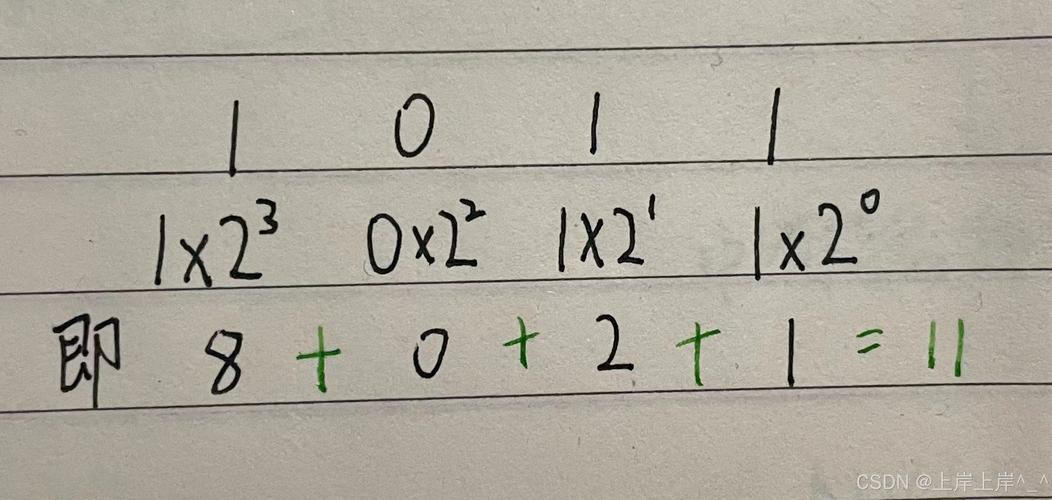 1 0 1 1
1×2³ 0×2² 1×2¹ 1×2⁰
即 8 + 0 + 2 + 1 = 11
CSDN @上岸上岸^_^